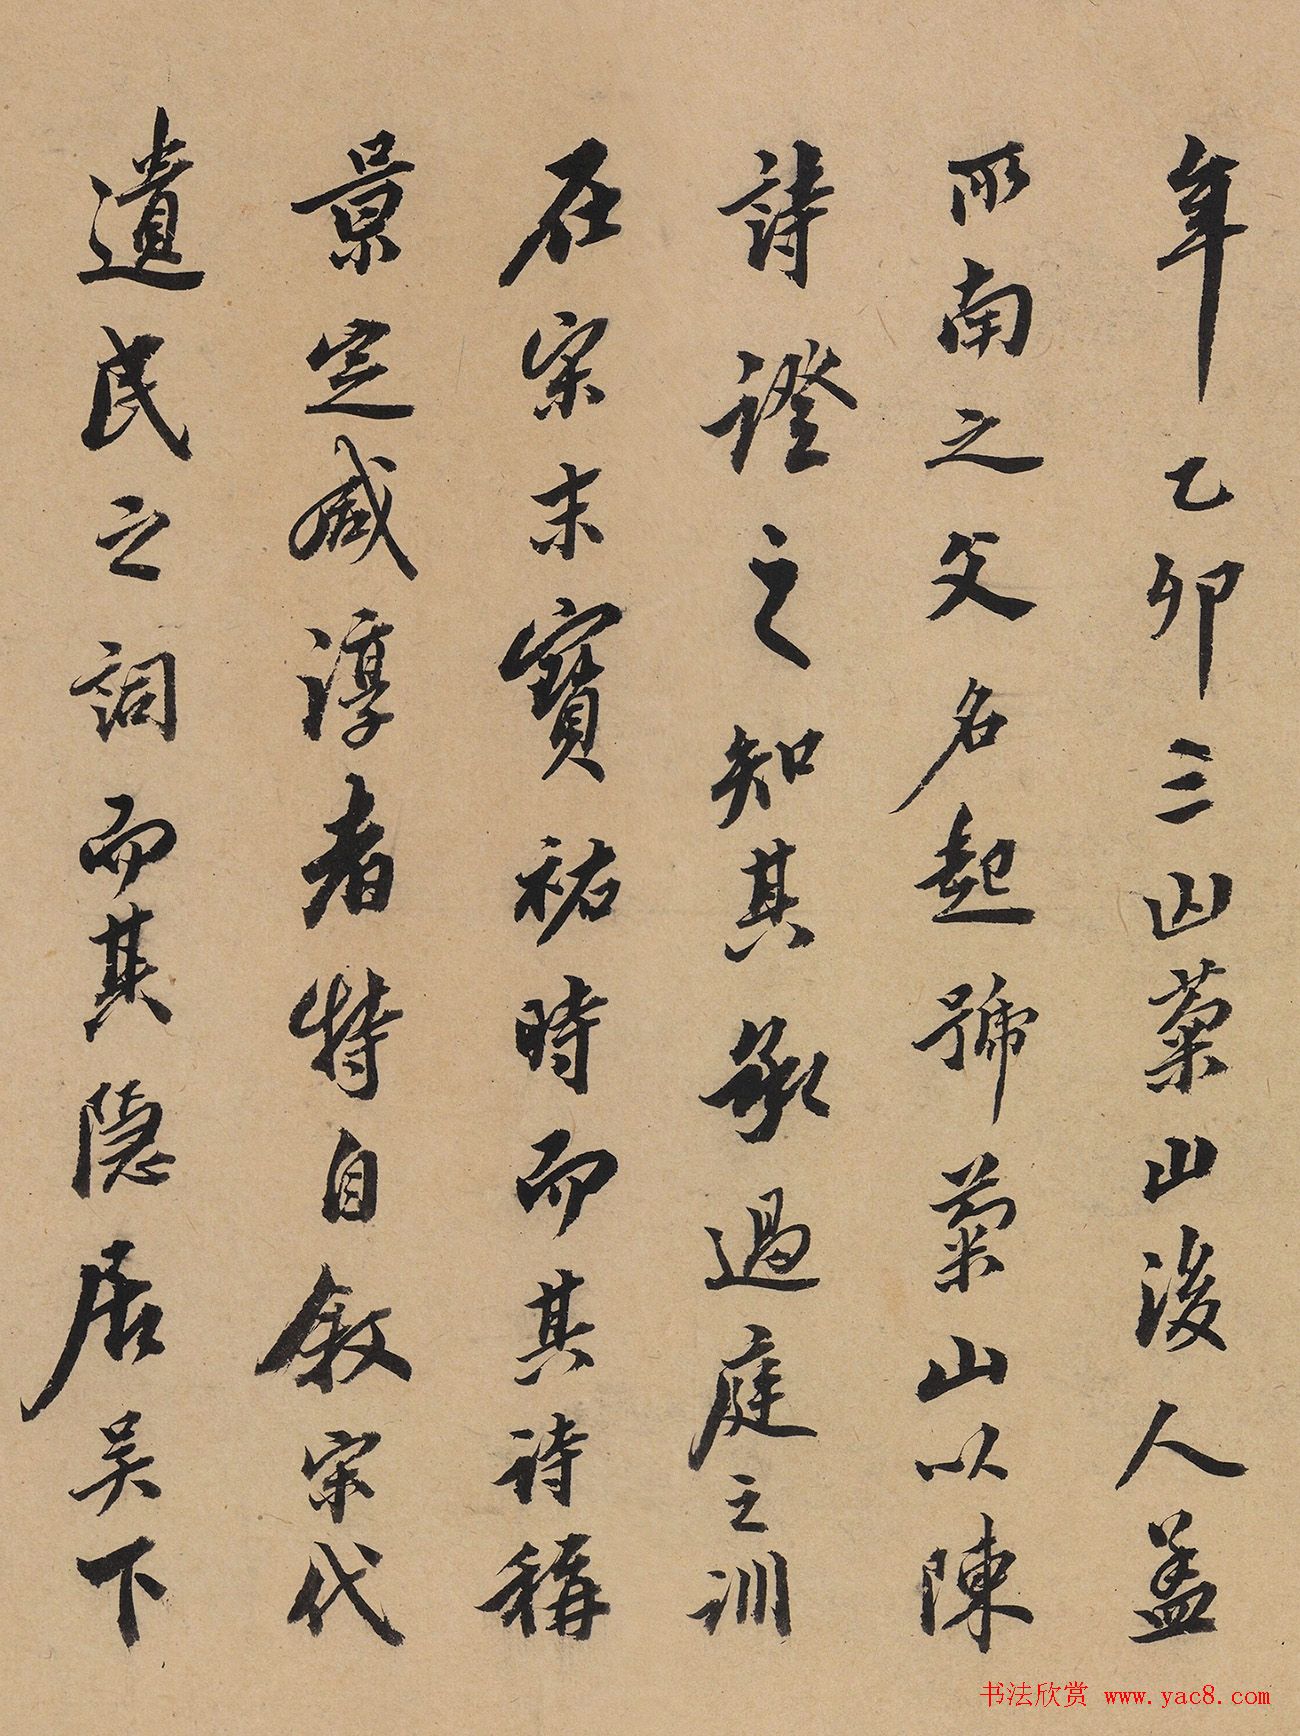 年乙卯三山菊山後人蓋
所南之父名起號菊山以陳
詩證之知其承過庭之訓
在宋末寶祐時而其詩稱
景定咸淳者特自敘宋代
遺民之詞而其隱居吴下
书法欣赏 www.yac8.com